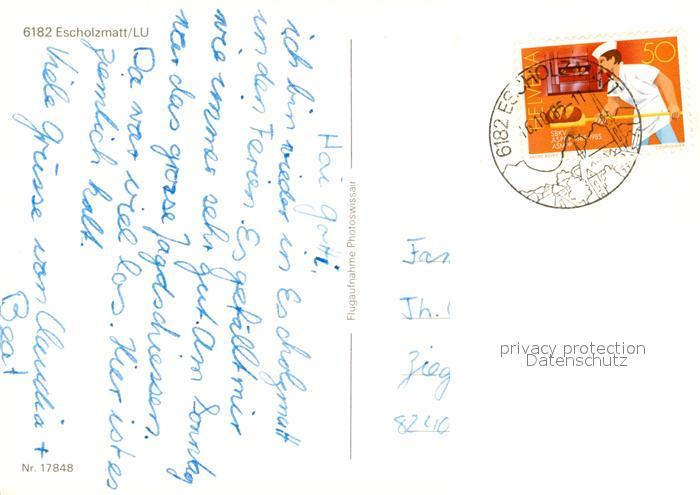 6182 Escholzmatt/LU
Hai Gotti,
ich bin wieder in Escholzmatt
in den Ferien. Es gefällt mir
wie immer sehr gut. Am Sonntag
war das grosse Jagdschiessen.
Da war viel los. Hier ist es
ziemlich kalt.
Viele Grüsse von Claudia +
Beat
Nr. 17848
Flugaufnahme Photoswissair
HELVETIA
50
SBKV
1985
6182 ESCHOLZMATT
Fam
Th.
Zieg
8240
privacy protection
Datenschutz